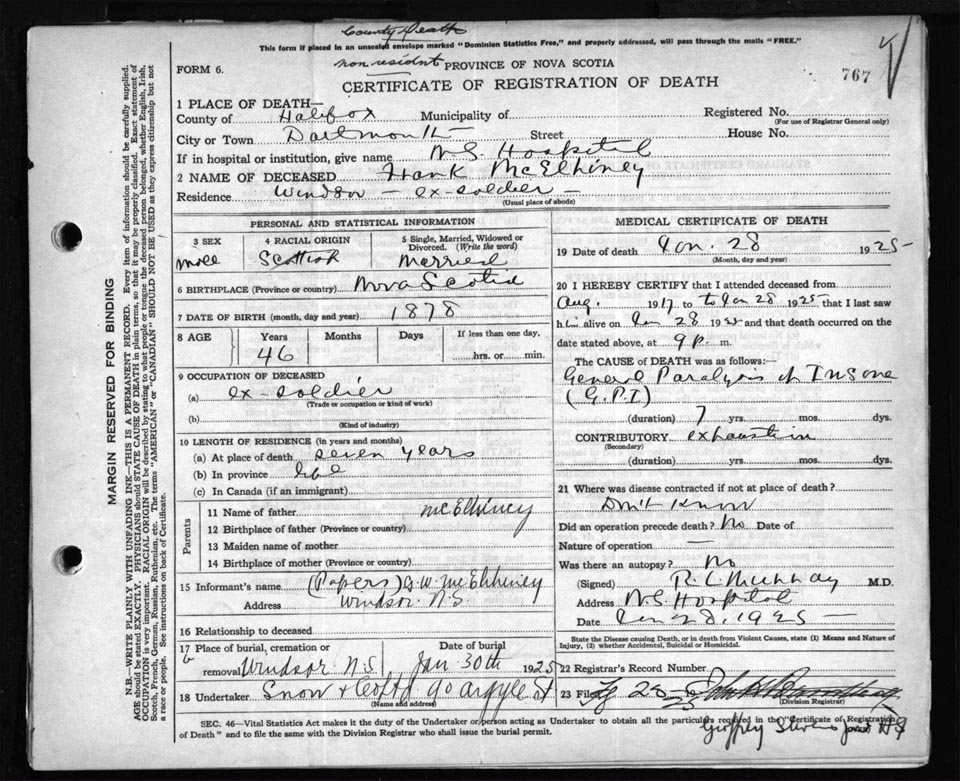 County Death
This form if placed in an unsealed envelope marked "Dominion Statistics Free," and properly addressed, will pass through the mails "FREE."
non resident
PROVINCE OF NOVA SCOTIA
FORM 6.
767
CERTIFICATE OF REGISTRATION OF DEATH
1 PLACE OF DEATH—
County of Halifax Municipality of Registered No.
(For use of Registrar General only)
City or Town Dartmouth Street House No.
If in hospital or institution, give name N.S. Hospital
2 NAME OF DECEASED Frank McElhiney
Residence Windsor — ex-soldier —
(Usual place of abode)
PERSONAL AND STATISTICAL INFORMATION
3 SEX 4 RACIAL ORIGIN 5 Single, Married, Widowed or Divorced. (Write the word)
male Scottish Married
6 BIRTHPLACE (Province or country) Nova Scotia
7 DATE OF BIRTH (month, day and year) 1878
8 AGE Years Months Days If less than one day,
46 hrs. or min.
9 OCCUPATION OF DECEASED
(a) ex-soldier
(Trade or occupation or kind of work)
(b)
(Kind of industry)
10 LENGTH OF RESIDENCE (in years and months)
(a) At place of death seven years
(b) In province life
(c) In Canada (if an immigrant)
Parents
11 Name of father McElhiney
12 Birthplace of father (Province or country)
13 Maiden name of mother
14 Birthplace of mother (Province or country)
15 Informant's name (Papers) G.W. McElhiney
Address Windsor N.S.
16 Relationship to deceased
17 Place of burial, cremation or removal Windsor N.S. Date of burial Jan 30th 1925
18 Undertaker Snow & Co Ltd 90 Argyle St
(Name and address)
MEDICAL CERTIFICATE OF DEATH
19 Date of death Jan. 28 1925
(Month, day and year)
20 I HEREBY CERTIFY that I attended deceased from
Aug. 1917 to Jan 28 1925 that I last saw
h alive on Jan 28 1925 and that death occurred on the
date stated above, at 9 P. m.
The CAUSE of DEATH was as follows:
General Paralysis of Insane
(G.P.I)
(duration) 7 yrs. mos. dys.
CONTRIBUTORY exhaustion
(Secondary)
(duration) yrs. mos. dys.
21 Where was disease contracted if not at place of death?
Don't Know
Did an operation precede death? No Date of
Nature of operation —
Was there an autopsy? No
(Signed) R. C. Murray M.D.
Address N.S. Hospital
Date Jan 28, 1925 —
State the Disease causing Death, or in death from Violent Causes, state (1) Means and Nature of Injury, (2) whether Accidental, Suicidal or Homicidal.
22 Registrar's Record Number
23 Filed 28
25
(Division Registrar)
SEC. 46—Vital Statistics Act makes it the duty of the Undertaker or person acting as Undertaker to obtain all the particulars required in the "Certificate of Registration
of Death" and to file the same with the Division Registrar who shall issue the burial permit.
Geoffrey Stevens
MARGIN RESERVED FOR BINDING
N.B.—WRITE PLAINLY WITH UNFADING INK—THIS IS A PERMANENT RECORD. Every item of information should be carefully supplied.
AGE should be stated EXACTLY. PHYSICIANS should STATE CAUSE OF DEATH in plain terms, so that it may be properly classified. Exact statement of
OCCUPATION is very important. RACIAL ORIGIN will be described by stating to what people or tongue the deceased person belonged, whether English, Irish,
Scotch, French, German, Russian, Ruthenian, etc. The terms "AMERICAN" or "CANADIAN" SHOULD NOT BE USED as they express citizenship but not
a race or people. See instructions on back of Certificate.